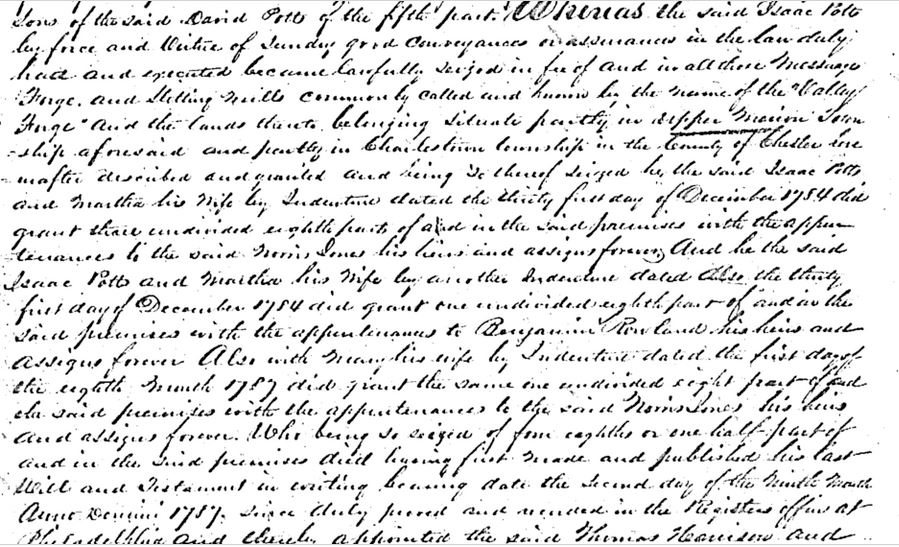 Sons of the said David Potts of the fifth part. Whereas the said Isaac Potts
by force and Virtue of Sundry good Conveyances or assurances in the law duly
had and executed became lawfully seized in fee of and in all those Messuage
Forge, and Slitting Mills commonly called and known by the name of the "Valley
Forge" And the lands thereto belonging Situate partly in Upper Merion Town
-ship aforesaid and partly in Charlestown township in the County of Chester here
inafter described and granted and being so thereof seized he, the said Isaac Potts
and Martha his Wife by Indenture dated the thirty first day of December 1784 did
grant three undivided eighth parts of and in the said premises with the appur
tenances to the said Norris Jones his heirs and assigns forever, And he the said
Isaac Potts and Martha his Wife by another Indenture dated Also the thirty
first day of December 1784 did grant one undivided eighth part of and in the
said premises with the appurtenances to Benjamin Rowland his heirs and
assigns forever Also with Mary his wife by Indenture dated the first day of
the eighth Month 1787 did grant the same one undivided eight part of and
the said premises with the appurtenances to the said Norris Jones his heirs
and assigns forever. Who being so seized of four eighths or one half part of
and in the said premises died having first made and published his last
Will and Testament in writing bearing date the Second day of the Ninth Month
Anno Domini 1787. since duly proved and recorded in the Registers office at
Philadelphia and thereby appointed the said Thomas Harrison and